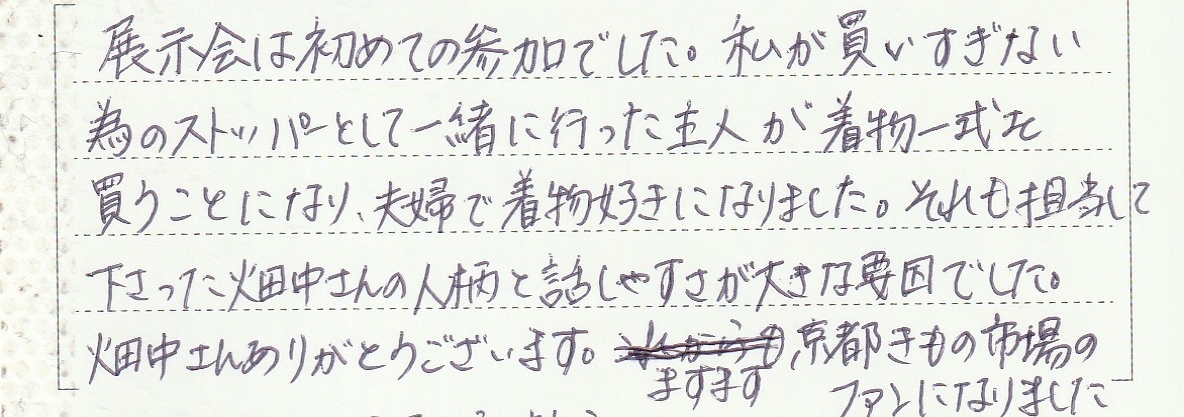 展示会は初めての参加でした。私が買いすぎない
為のストッパーとして一緒に行った主人が着物一式を
買うことになり、夫婦で着物好きになりました。それも担当して
下さった畑中さんの人柄と話しやすさが大きな要因でした。
畑中さんありがとうございます。ますます、京都きもの市場の
ファンになりました